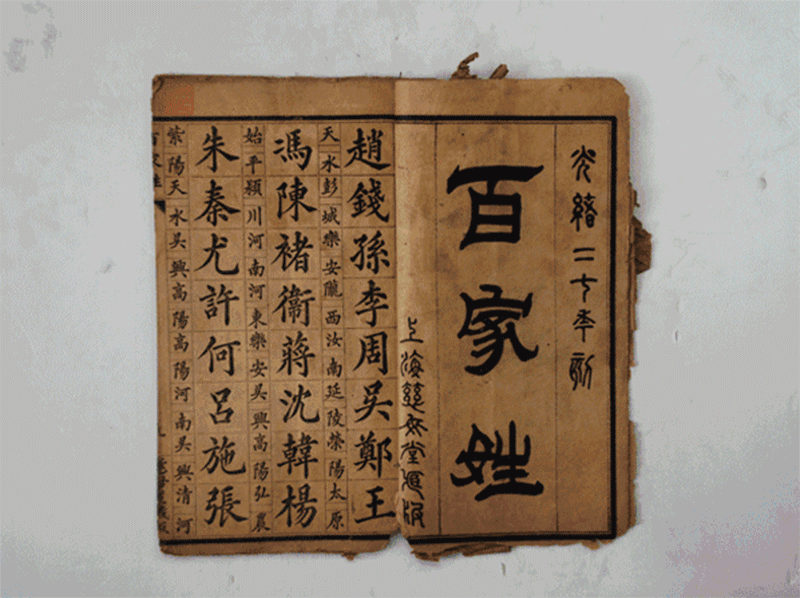 光緒二十年刻
百家姓
上海慈母堂匯版
趙錢孫李周吳鄭王
天水彭城樂安隴西汝南延陵滎陽太原
馮陳褚衞蔣沈韓楊
始平潁川河南河東樂安吳興南陽弘農
朱秦尤許何呂施張
紫陽天水吳興高陽高陽河南吳興清河
百家姓